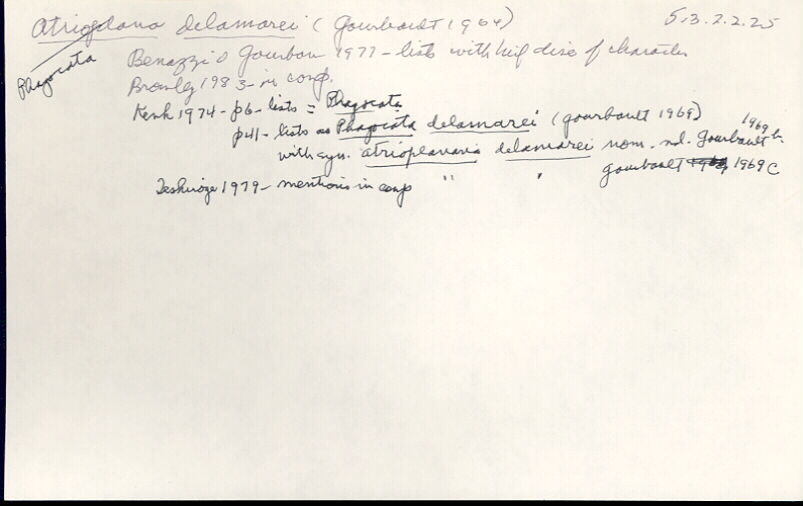 Atrioplana delamarei (Gourbault 1969) 5.3.2.2.25
Phagocata
Benazzi & Gourbau 1977 - lists with brief disc of character
Bromley 1983 - in comp.
Kenk 1974 - p6 - lists = Phagocata
p41 - lists as Phagocata delamarei (gourbault 1969)
with syn. atrioplanaria delamarei nom. nd. Gourbault 1969 b
gourbault 1969 C
Teshirogi 1979 - mentions in comp " "